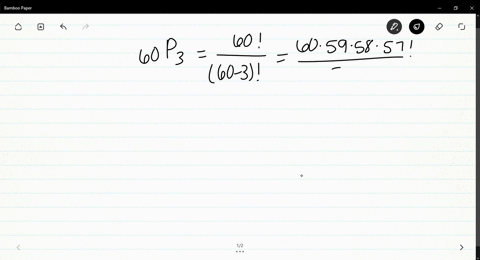 Bamboo Paper
60P3 = 60! / (60-3)! = 60·59·58·57! /
1/2